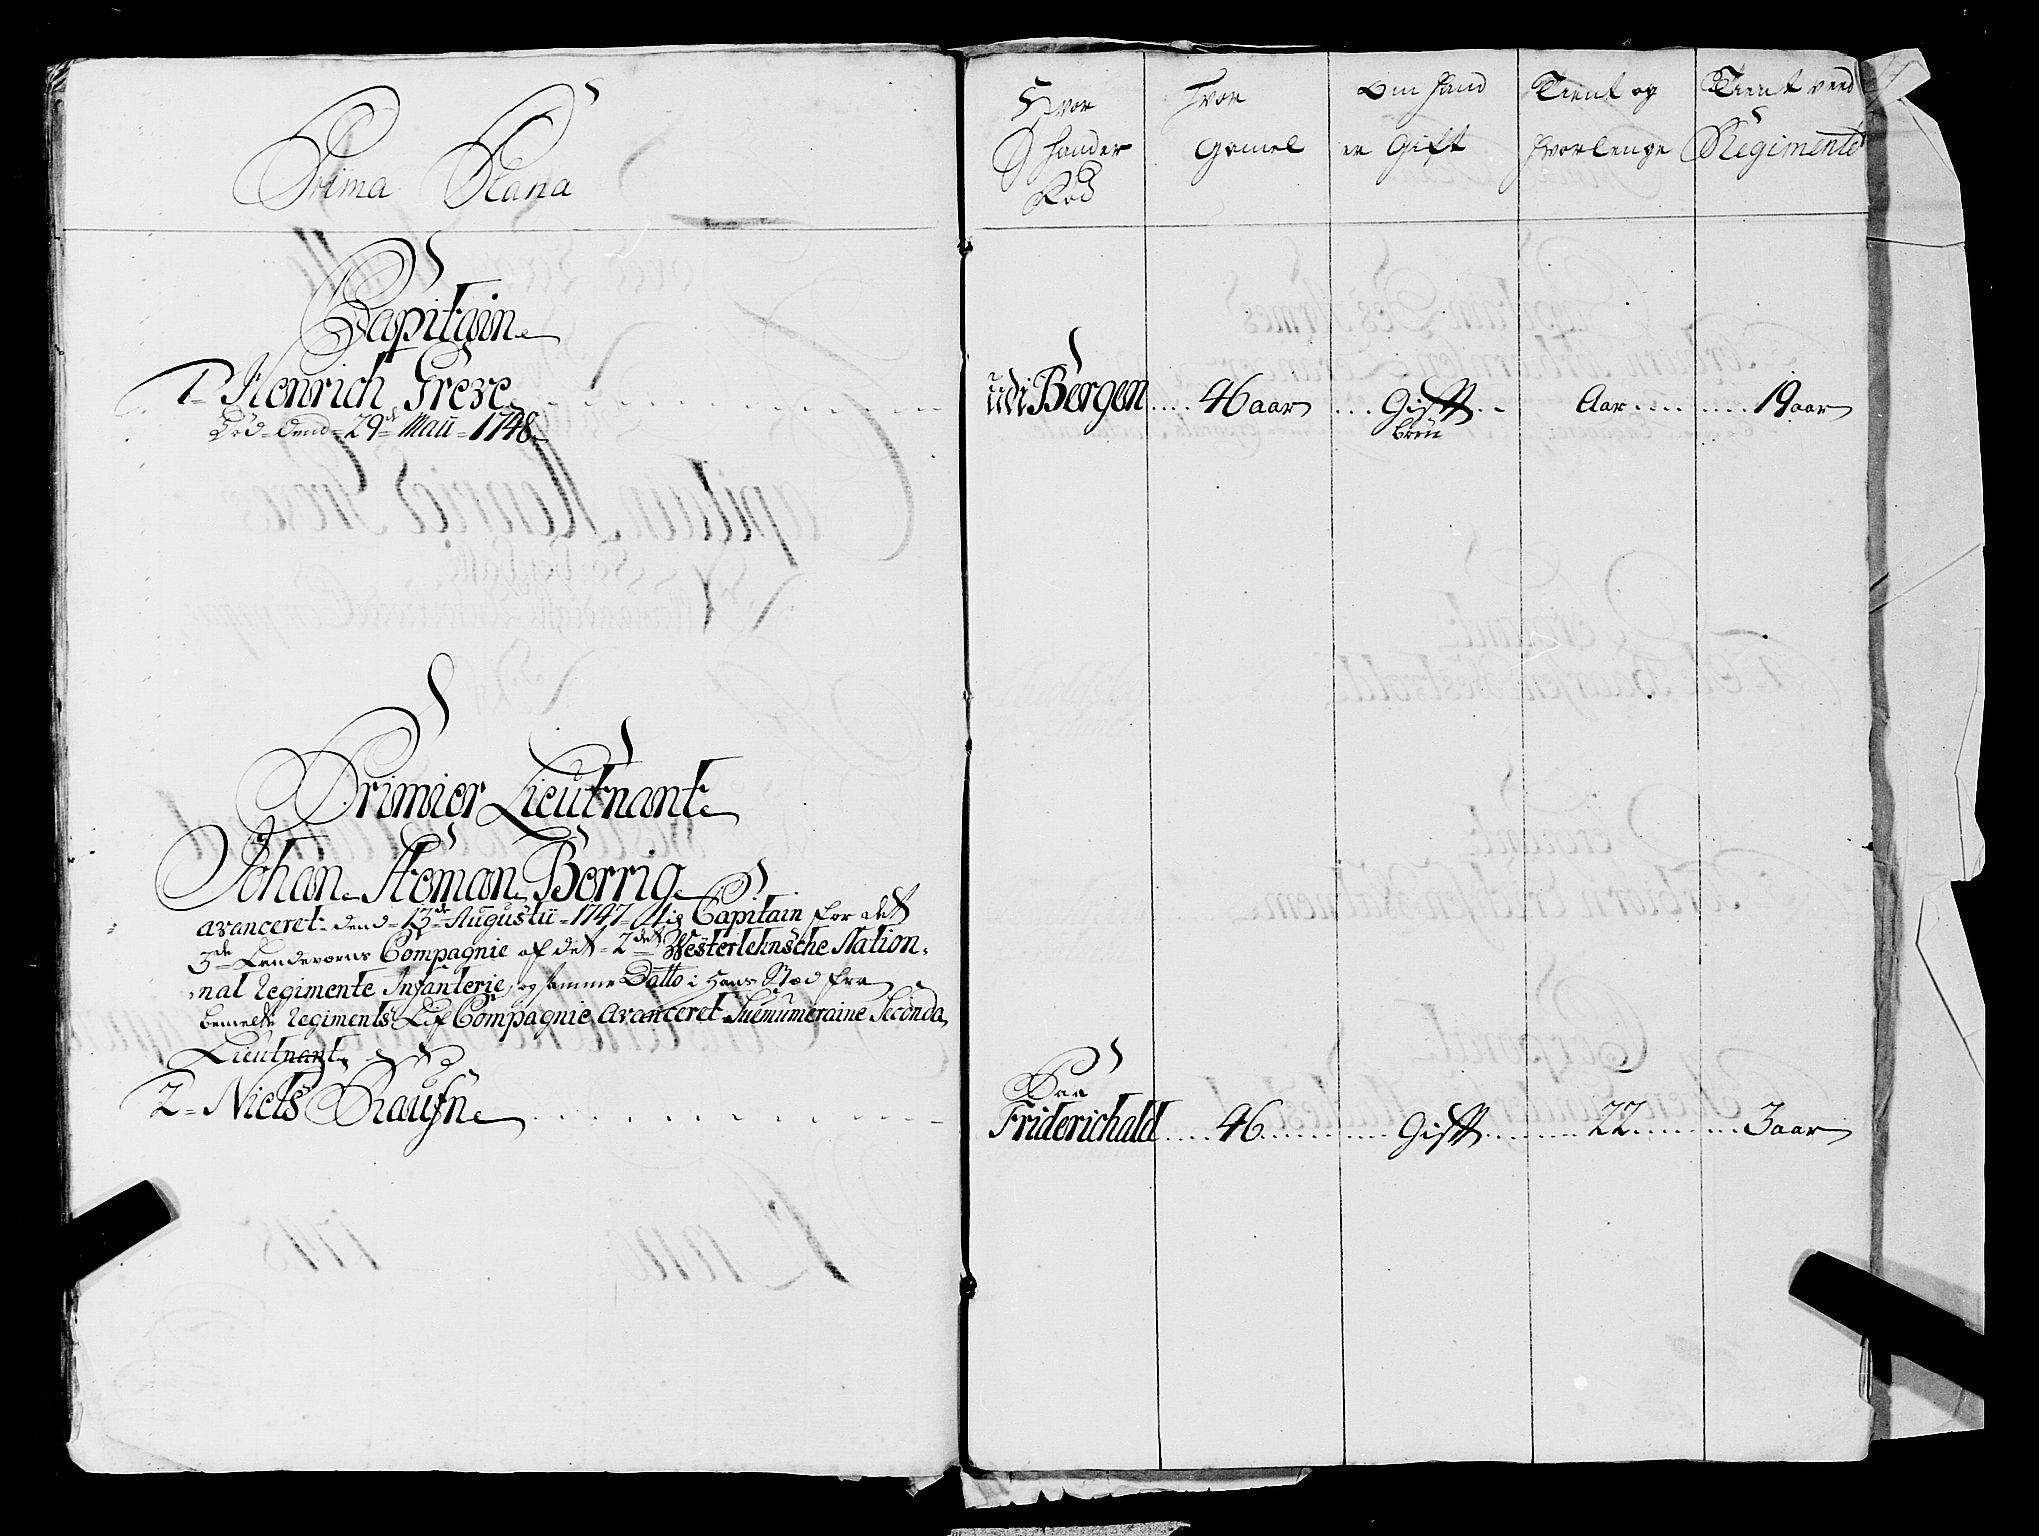 Prima Plana
Capitain
1 Henrich Greve
Død dend 29de Maii 1748
Primier Lieutnant
Johan Herman Borrig
avanceret dend 13de Augustii 1747 til Capitain for det
3de Landeværns Compagnie af det 2det Westerlehnsche Nation-
nal Regimente Infanterie, og samme Datto i Hans Stæd fra
bemelte Regiments Lif Compagnie avanceret Seconda
Lieutnant
2 Niels
Hvor
hand er
Fød
Hvor
Gamel
Om hand
er Gift
Tient og
hvorlenge
Tient ved
Regimente
udi Bergen 46 aar Gifft Aar 19 aar
Paa
Friderichald 46 Gifft 22 3 aar